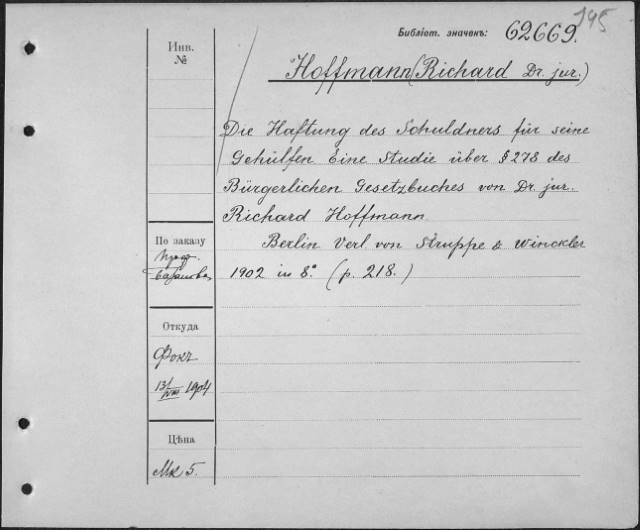 195
Библіот. значекъ: 62669.
Инв.
№
Hoffmann (Richard Dr. jur.)
Die Haftung des Schuldners für seine
Gehülfen Eine Studie über § 278 des
Bürgerlichen Gesetzbuches von Dr. jur.
Richard Hoffmann
Berlin Verl. von Struppe & Winckler
1902 in 8° (p. 218.)
По заказу
проф.
Откуда
Фокъ
13/VIII 1904
Цѣна
Мк 5.